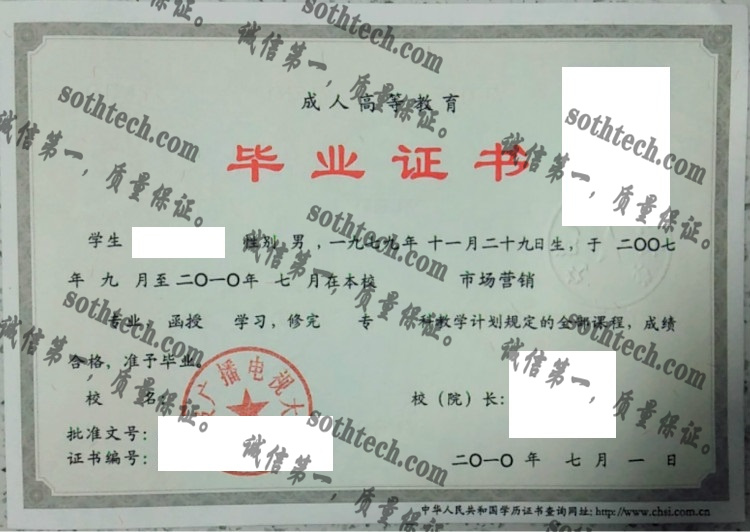 成人高等教育
毕业证书
学生 性别 男 ，一九七九年 十一月二十九日生，于 二〇〇七
年 九 月至 二〇一〇年 七 月在本校 市场营销
专业 函授 学习，修完 专 科教学计划规定的全部课程，成绩
合格，准予毕业。
校 名
广播电视大
校（院）长：
批准文号：
证书编号：
二〇一〇 年 七 月 一 日
中华人民共和国学历证书查询网址: http://www.chsi.com.cn
sothtech.com
诚信第一，质量保证。
sothtech.com
诚信第一，质量保证。
sothtech.com
诚信第一，质量保证。
sothtech.com
诚信第一，质量保证。
sothtech.com
诚信第一，质量保证。
sothtech.com
诚信第一，质量保证。
sothtech.com
诚信第一，质量保证。
sothtech.com
sothtech.com